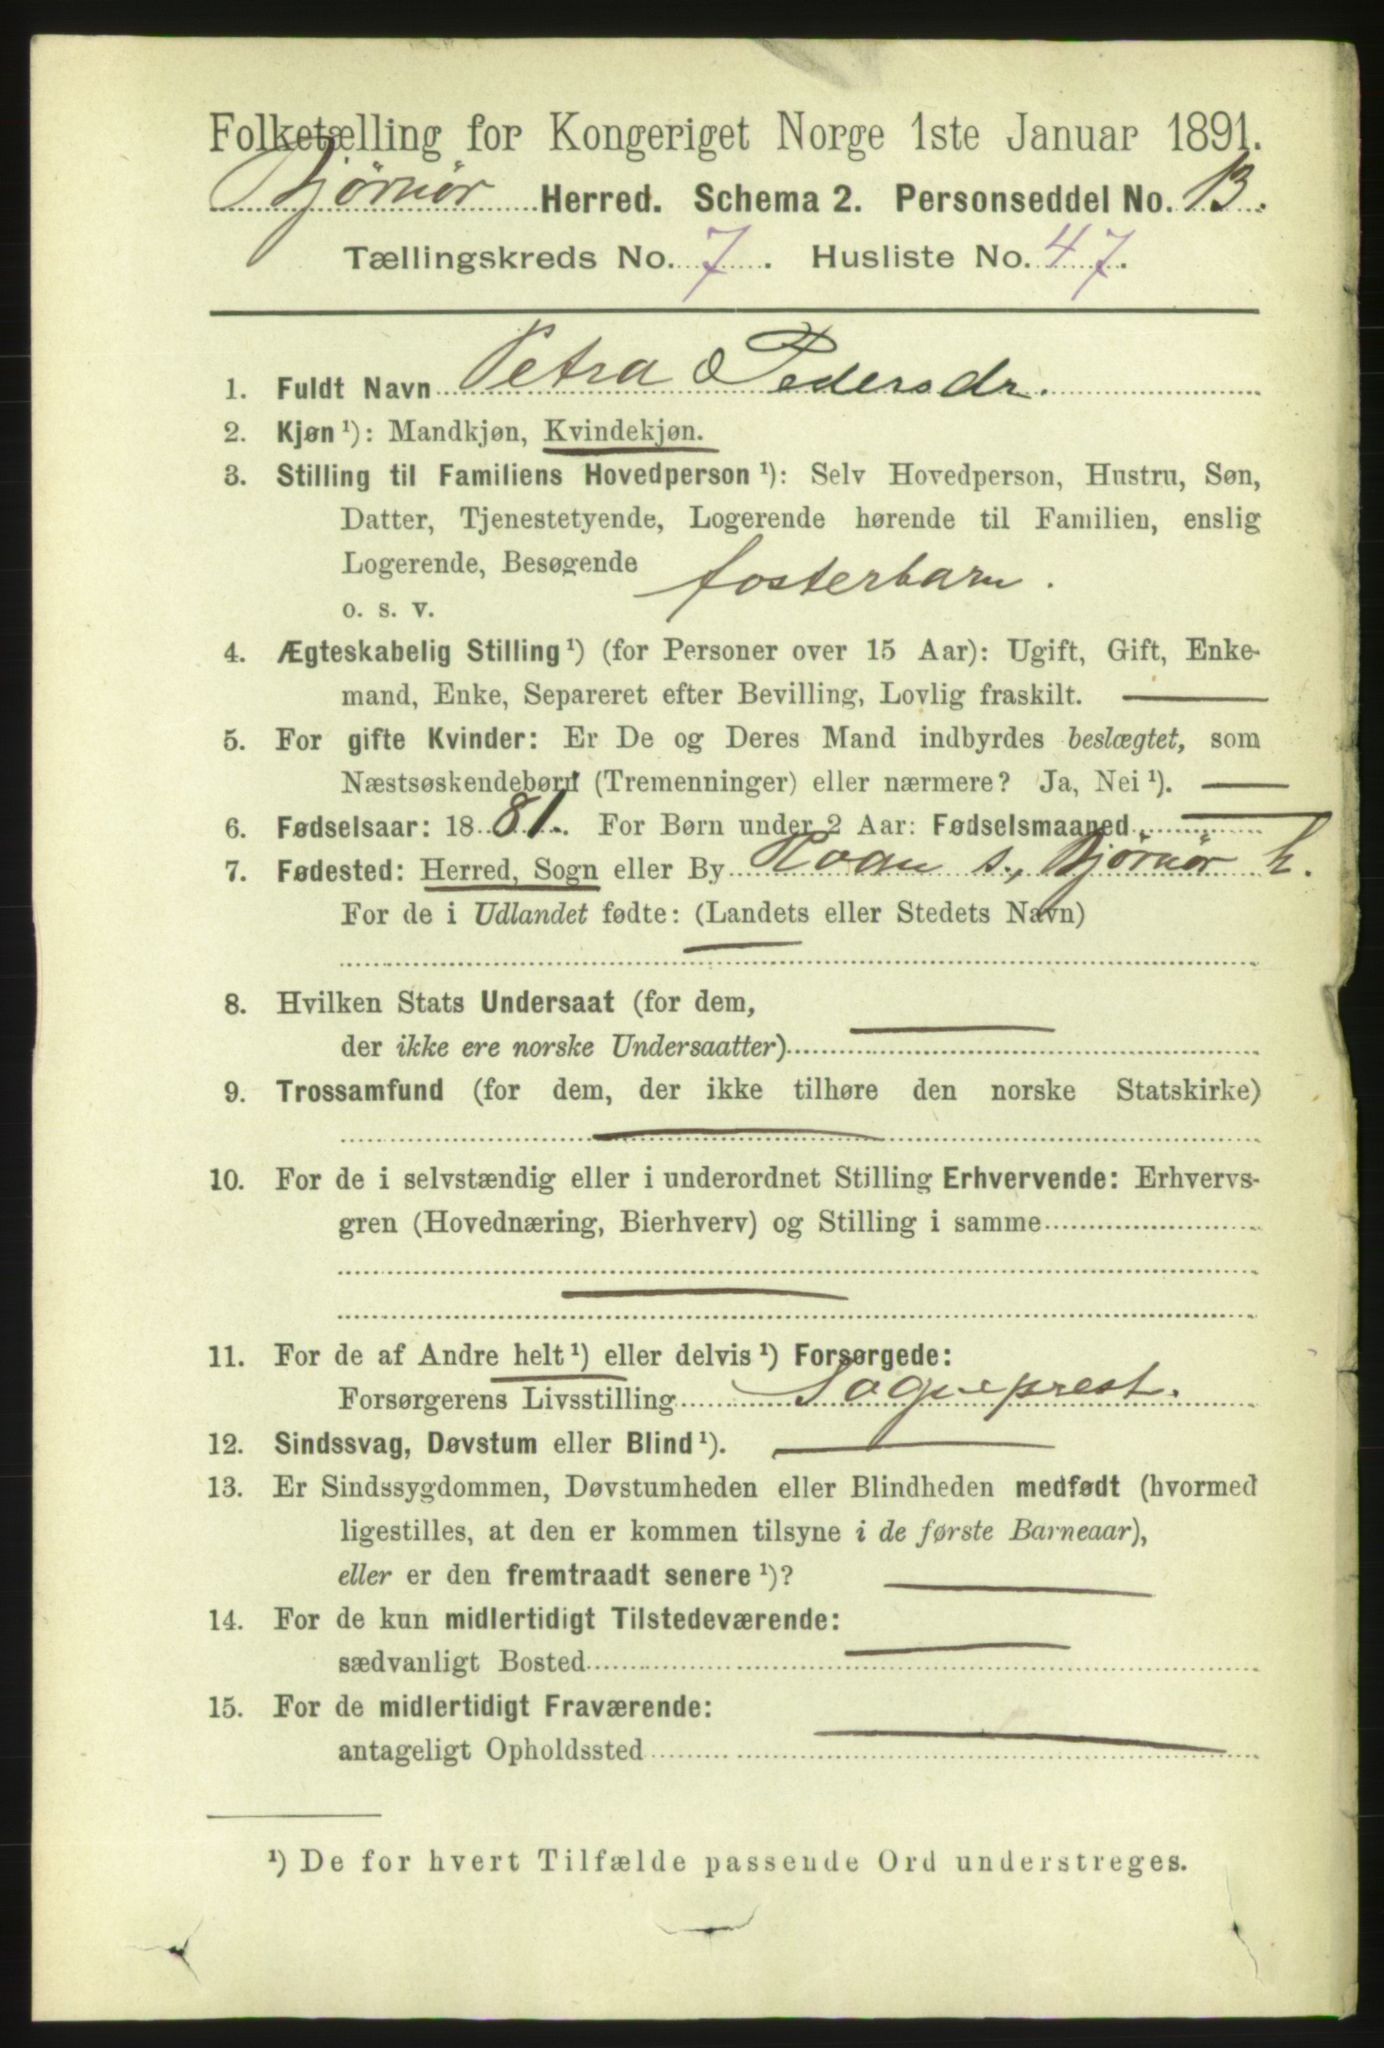 Folketælling for Kongeriget Norge 1ste Januar 1891.
Bjørnør Herred. Schema 2. Personseddel No. 13.
Tællingskreds No. 7. Husliste No. 47.
1. Fuldt Navn Petra Pedersdr.
2. Kjøn ¹): Mandkjøn, Kvindekjøn.
3. Stilling til Familiens Hovedperson ¹): Selv Hovedperson, Hustru, Søn,
Datter, Tjenestetyende, Logerende hørende til Familien, enslig
Logerende, Besøgende fosterbarn.
o. s. v.
4. Ægteskabelig Stilling ¹) (for Personer over 15 Aar): Ugift, Gift, Enke-
mand, Enke, Separeret efter Bevilling, Lovlig fraskilt.
5. For gifte Kvinder: Er De og Deres Mand indbyrdes beslægtet, som
Næstsøskendebørn (Tremenninger) eller nærmere? Ja, Nei ¹).
6. Fødselsaar: 1881. For Børn under 2 Aar: Fødselsmaaned
7. Fødested: Herred, Sogn eller By Roan s., Bjørnør h.
For de i Udlandet fødte: (Landets eller Stedets Navn)
8. Hvilken Stats Undersaat (for dem,
der ikke ere norske Undersaatter)
9. Trossamfund (for dem, der ikke tilhøre den norske Statskirke)
10. For de i selvstændig eller i underordnet Stilling Erhvervende: Erhvervs-
gren (Hovednæring, Bierhverv) og Stilling i samme
11. For de af Andre helt ¹) eller delvis ¹) Forsørgede:
Forsørgerens Livsstilling Sogneprest.
12. Sindssvag, Døvstum eller Blind ¹).
13. Er Sindssygdommen, Døvstumheden eller Blindheden medfødt (hvormed
ligestilles, at den er kommen tilsyne i de første Barneaar),
eller er den fremtraadt senere ¹)?
14. For de kun midlertidigt Tilstedeværende:
sædvanligt Bosted
15. For de midlertidigt Fraværende:
antageligt Opholdssted
¹) De for hvert Tilfælde passende Ord understreges.